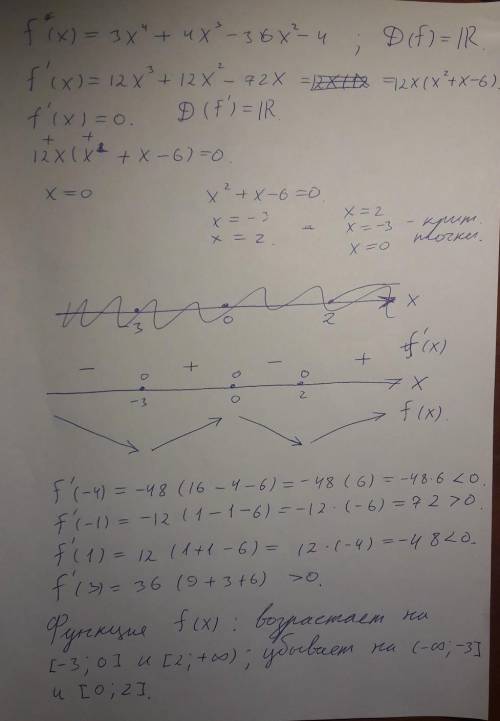 f(x) = 3x⁴ + 4x³ - 36x² - 4 ; D(f) = ℝ.
f'(x) = 12x³ + 12x² - 72x = = 12x(x² + x - 6)
f'(x) = 0. D(f') = ℝ.
+ +
12x(x² + x - 6) = 0.
x = 0 x² + x - 6 = 0.
x = -3
x = 2.
x = 2
x = -3 - крит.
x = 0 точки.
3 0 2 x
- + - + f'(x)
0 0 0
-3 0 2 x
f(x).
f'(-4) = -48(16 - 4 - 6) = -48(6) = -48·6 < 0.
f'(-1) = -12(1 - 1 - 6) = -12·(-6) = 72 > 0.
f'(1) = 12(1 + 1 - 6) = 12·(-4) = -48 < 0.
f'(3) = 36(9 + 3 + 6) > 0.
Функция f(x): возрастает на
[-3; 0] и [2; +∞); убывает на (-∞; -3]
и [0; 2].